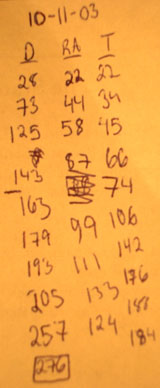 10-11-03
D RA T
28 22 22
73 44 34
125 58 45
143 87 66
163 74
179 99 106
193 111 142
205 133 176
257 124 188
276 184